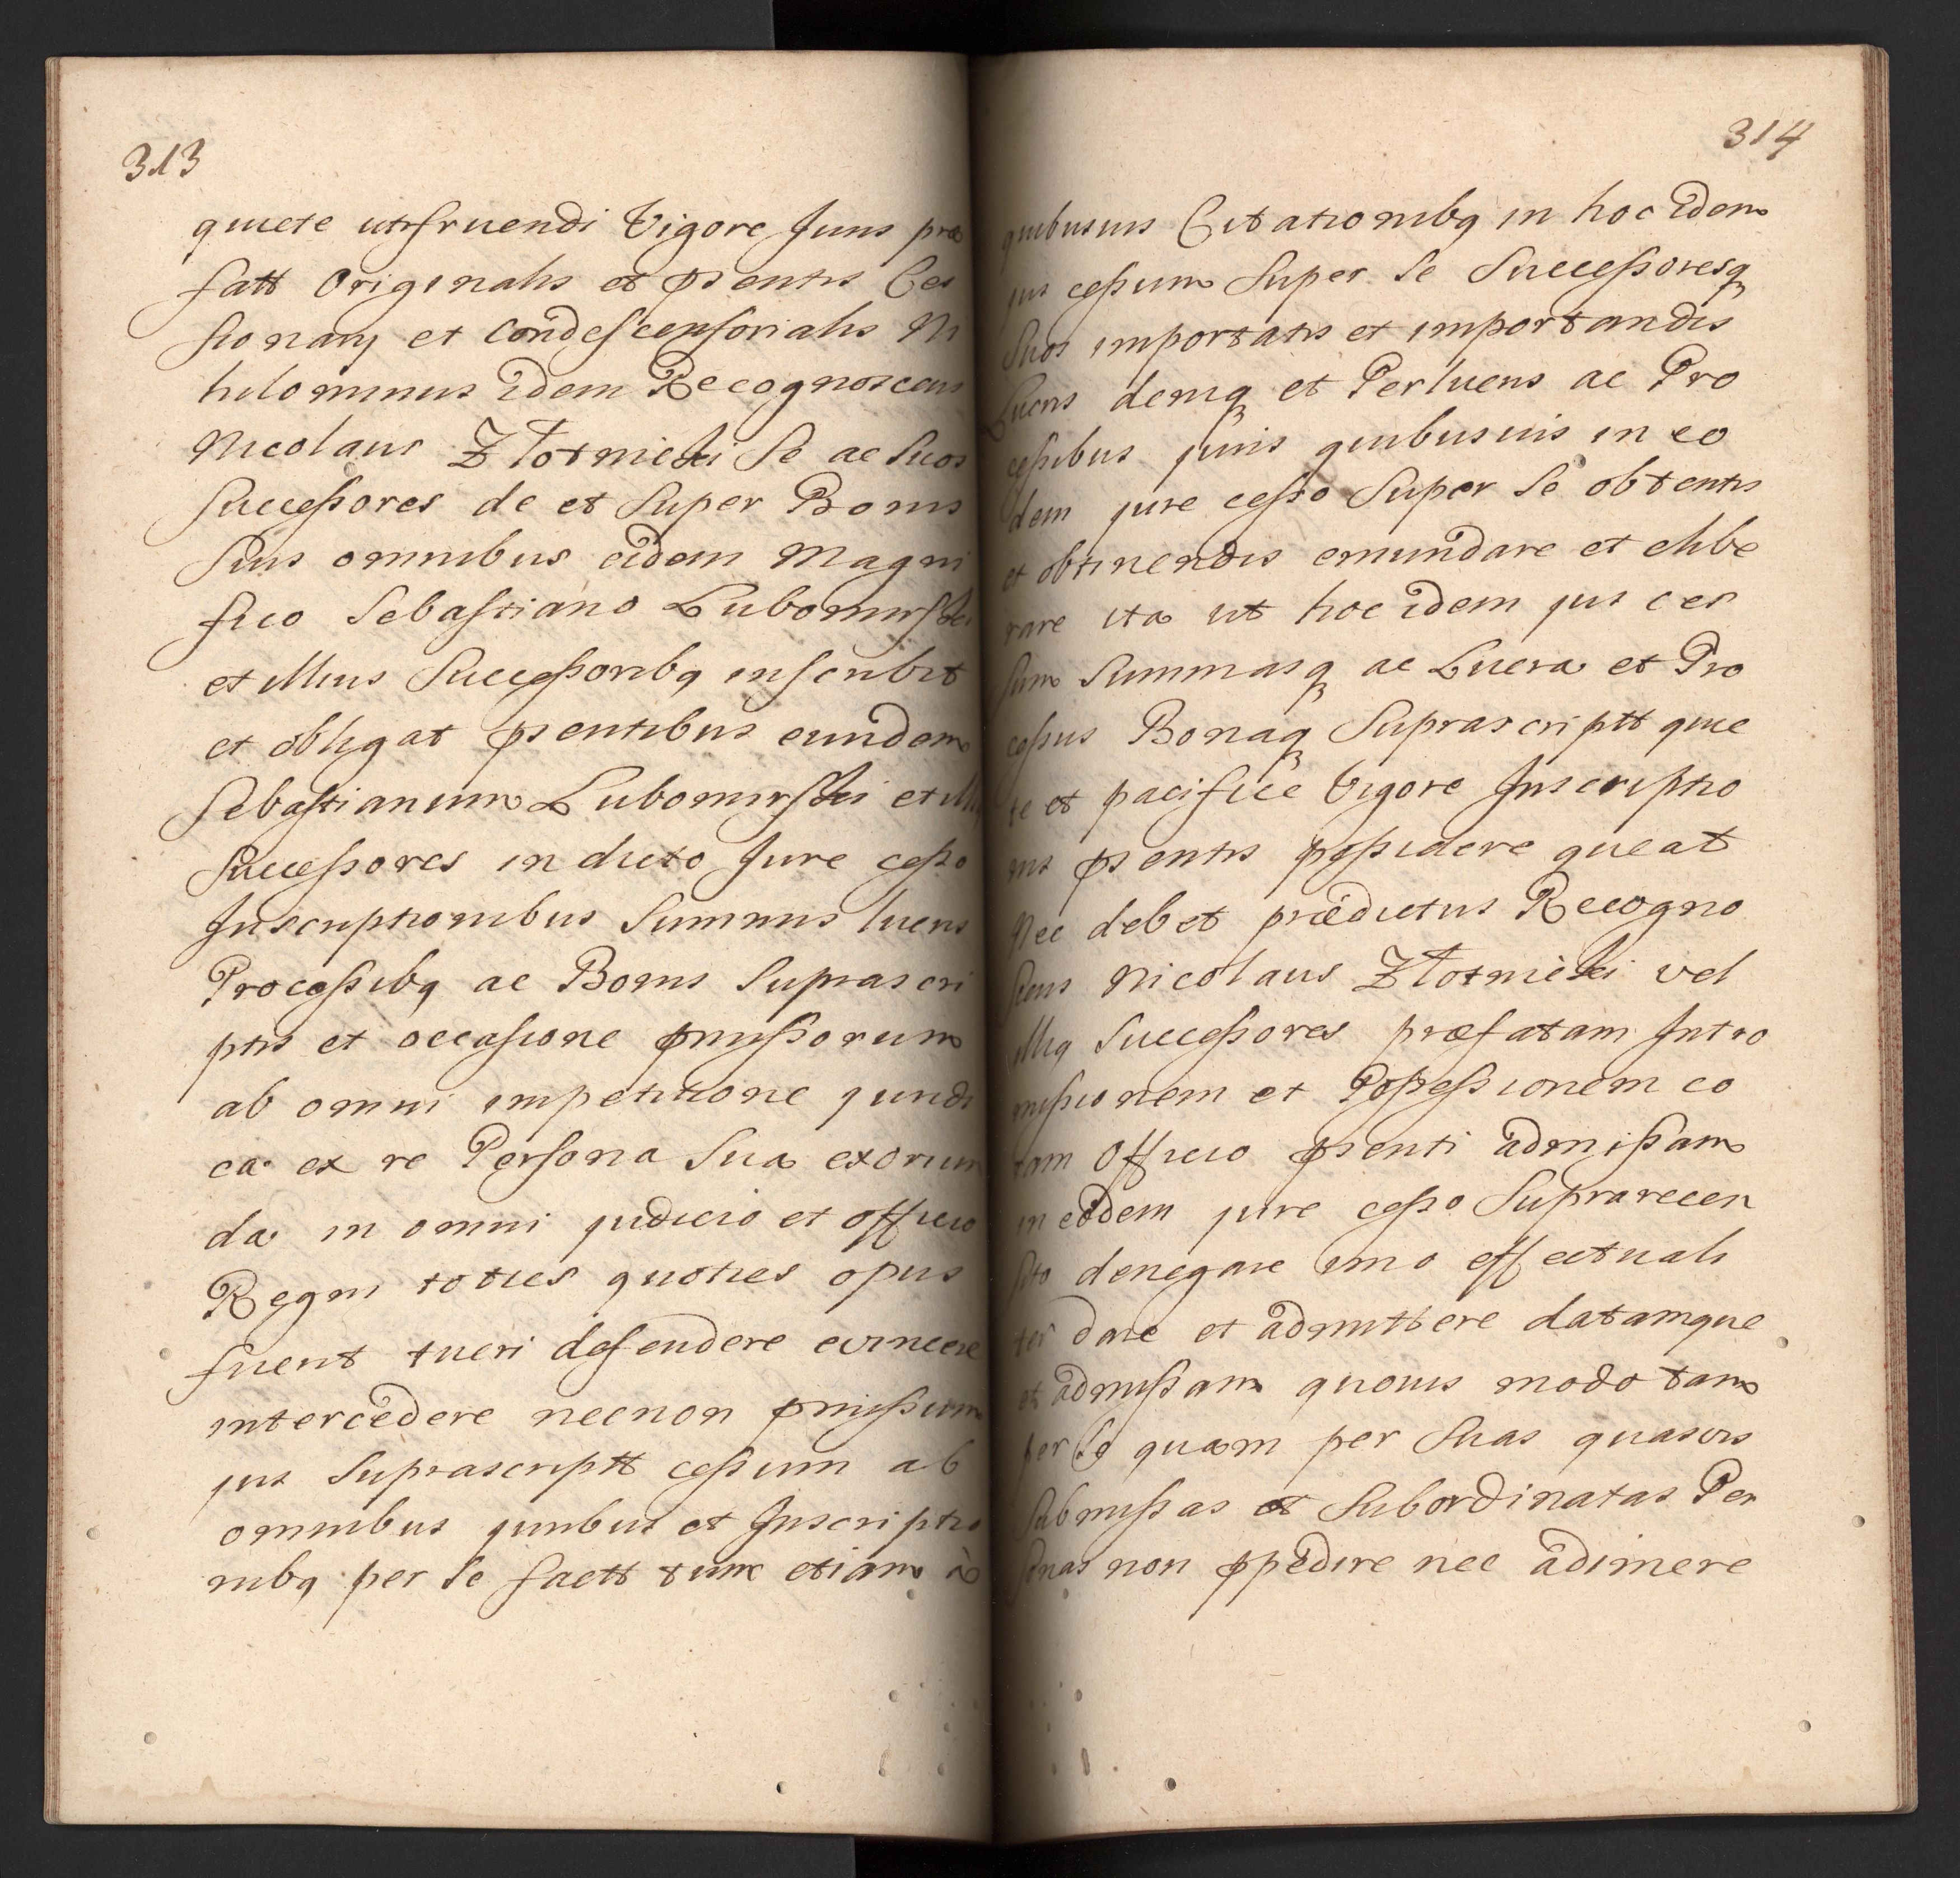 313
quiete utifruendi Vigore Juris præ
fatt Originalis et pñsentis Ces
sionarij et condescensorialis Ni
hilominus idem Recognoscens
Nicolaus Złotnicki Se ac Suos
Successores de et Super Bonis
Suis omnibus eidem Magni
fico Sebastiano Lubomirski
et illius Successoribq inscribit
et obligat pñsentibus eundem
Sebastianum Lubomirski et illiq
Successores in dicto Jure cesso
Inscriptionibus Summis lucris
Processibq ac Bonis Suprascri
ptis et occasione pmissorum
ab omni impetitione juridi
ca ex re Persona Sua exorien
da in omni judicio et officio
Regni toties quoties opus
fuerit tueri defendere evincere
intercedere necnon pmissum
jus Suprascriptt cessum ab
omnibus juribus et Inscriptio
nibq per Se factt tum etiam à
314
quibusuis Citationibq in hoc idem
jus cessum Super Se Successoresq
Suos importatis et importandis
Lucris deniq et Perlucris ac Pro
cessibus juris quibusuis in eo
dem jure cesso Super Se obtentis
et obtinendis emundare et elibe
rare ita ut hoc idem jus ces
sum Summasq ac Lucra et Pro
cessus Bonaq Suprascriptt quie
te et pacifice Vigore Inscriptio
nis pñsentis possidere queat
Nec debet prædictus Recogno
scens Nicolaus Złotnicki vel
illiq Successores præfatam Intro
missionem et Possessionem eo
ram Officio pñsenti admissam
in eodem jure cesso Suprarecen
sito denegare imo effectuali
ter dare et admittere datamque
et admissam quouis modo tam
per Se quam per Suas quasuis
Submissas et Subordinatas Per
sonas non ppedire nec adimere